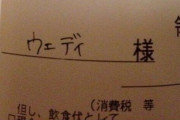 ウェディ 様
(消費税 等
但し、飲食代として